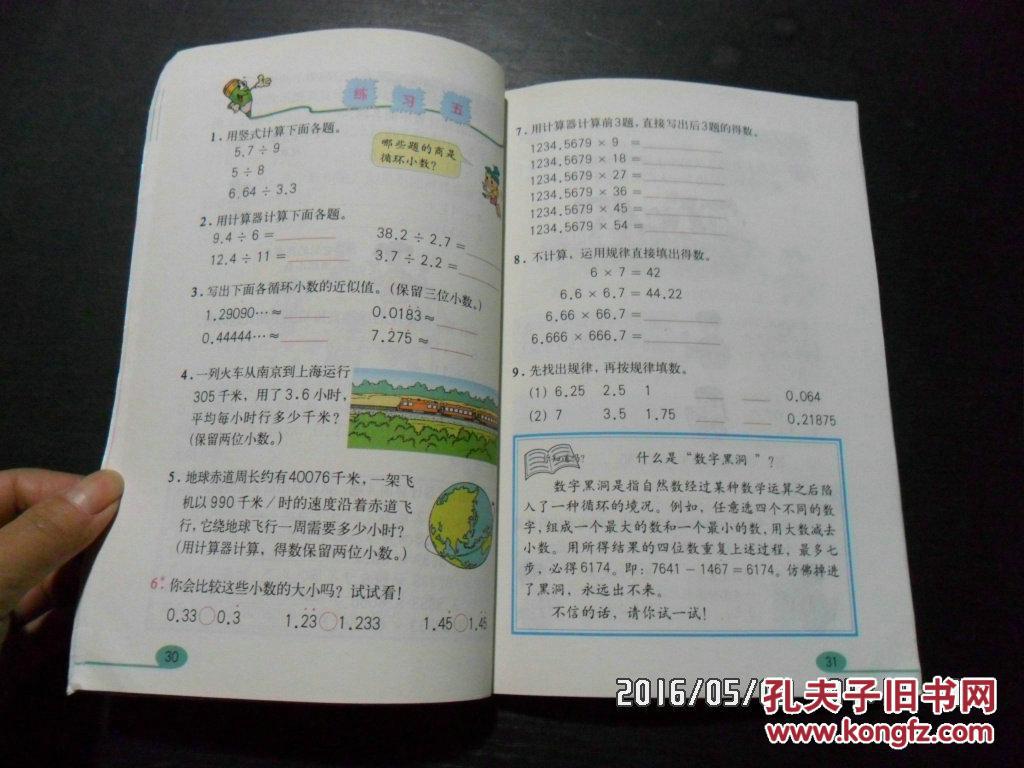 练习五
1. 用竖式计算下面各题。
5.7 ÷ 9
5 ÷ 8
6.64 ÷ 3.3
哪些题的商是
循环小数？
2. 用计算器计算下面各题。
9.4 ÷ 6 =
38.2 ÷ 2.7 =
12.4 ÷ 11 =
3.7 ÷ 2.2 =
3. 写出下面各循环小数的近似值。(保留三位小数。)
1.29090…≈
0.018̇3̇≈
0.44444…≈
7.2̇75̇≈
4. 一列火车从南京到上海运行
305千米，用了3.6小时，
平均每小时行多少千米？
(保留两位小数。)
5. 地球赤道周长约有40076千米，一架飞
机以990千米／时的速度沿着赤道飞
行，它绕地球飞行一周需要多少小时？
(用计算器计算，得数保留两位小数。)
6* 你会比较这些小数的大小吗？试试看！
0.33○0.3̇
1.2̇3̇○1.233
30
7. 用计算器计算前3题，直接写出后3题的得数。
1234.5679 × 9 =
1234.5679 × 18 =
1234.5679 × 27 =
1234.5679 × 36 =
1234.5679 × 45 =
1234.5679 × 54 =
8. 不计算，运用规律直接填出得数。
6 × 7 = 42
6.6 × 6.7 = 44.22
6.66 × 66.7 =
6.666 × 666.7 =
9. 先找出规律，再按规律填数。
(1) 6.25 2.5 1 0.064
(2) 7 3.5 1.75 0.21875
你知道吗？
什么是“数字黑洞”？
数字黑洞是指自然数经过某种数学运算之后陷
入了一种循环的境况。例如，任意选四个不同的数
字，组成一个最大的数和一个最小的数，用大数减去
小数。用所得结果的四位数重复上述过程，最多七
步，必得6174。即：7641 － 1467 = 6174。仿佛掉进
了黑洞，永远出不来。
不信的话，请你试一试！
31
2016/05/
孔夫子旧书网
www.kongfz.com